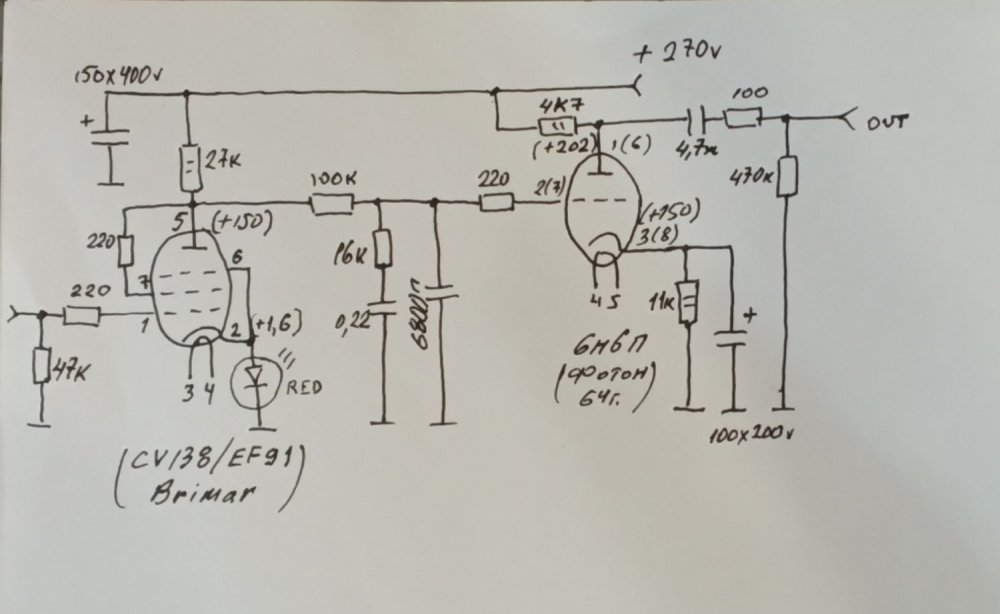 150x400v
+ 270v
+
27к
4К7
(+202)
1(6)
4,7н
100
OUT
470к
5
(+150)
100К
220
2(7)
(+150)
3(8)
220
7
6
220
1
2
(+1,6)
16к
0,22
6800п
4 5
11к
+
47к
3 4
RED
6Н6П
(Фотон)
64г.
100x200v
(CV138/EF91)
Brimar